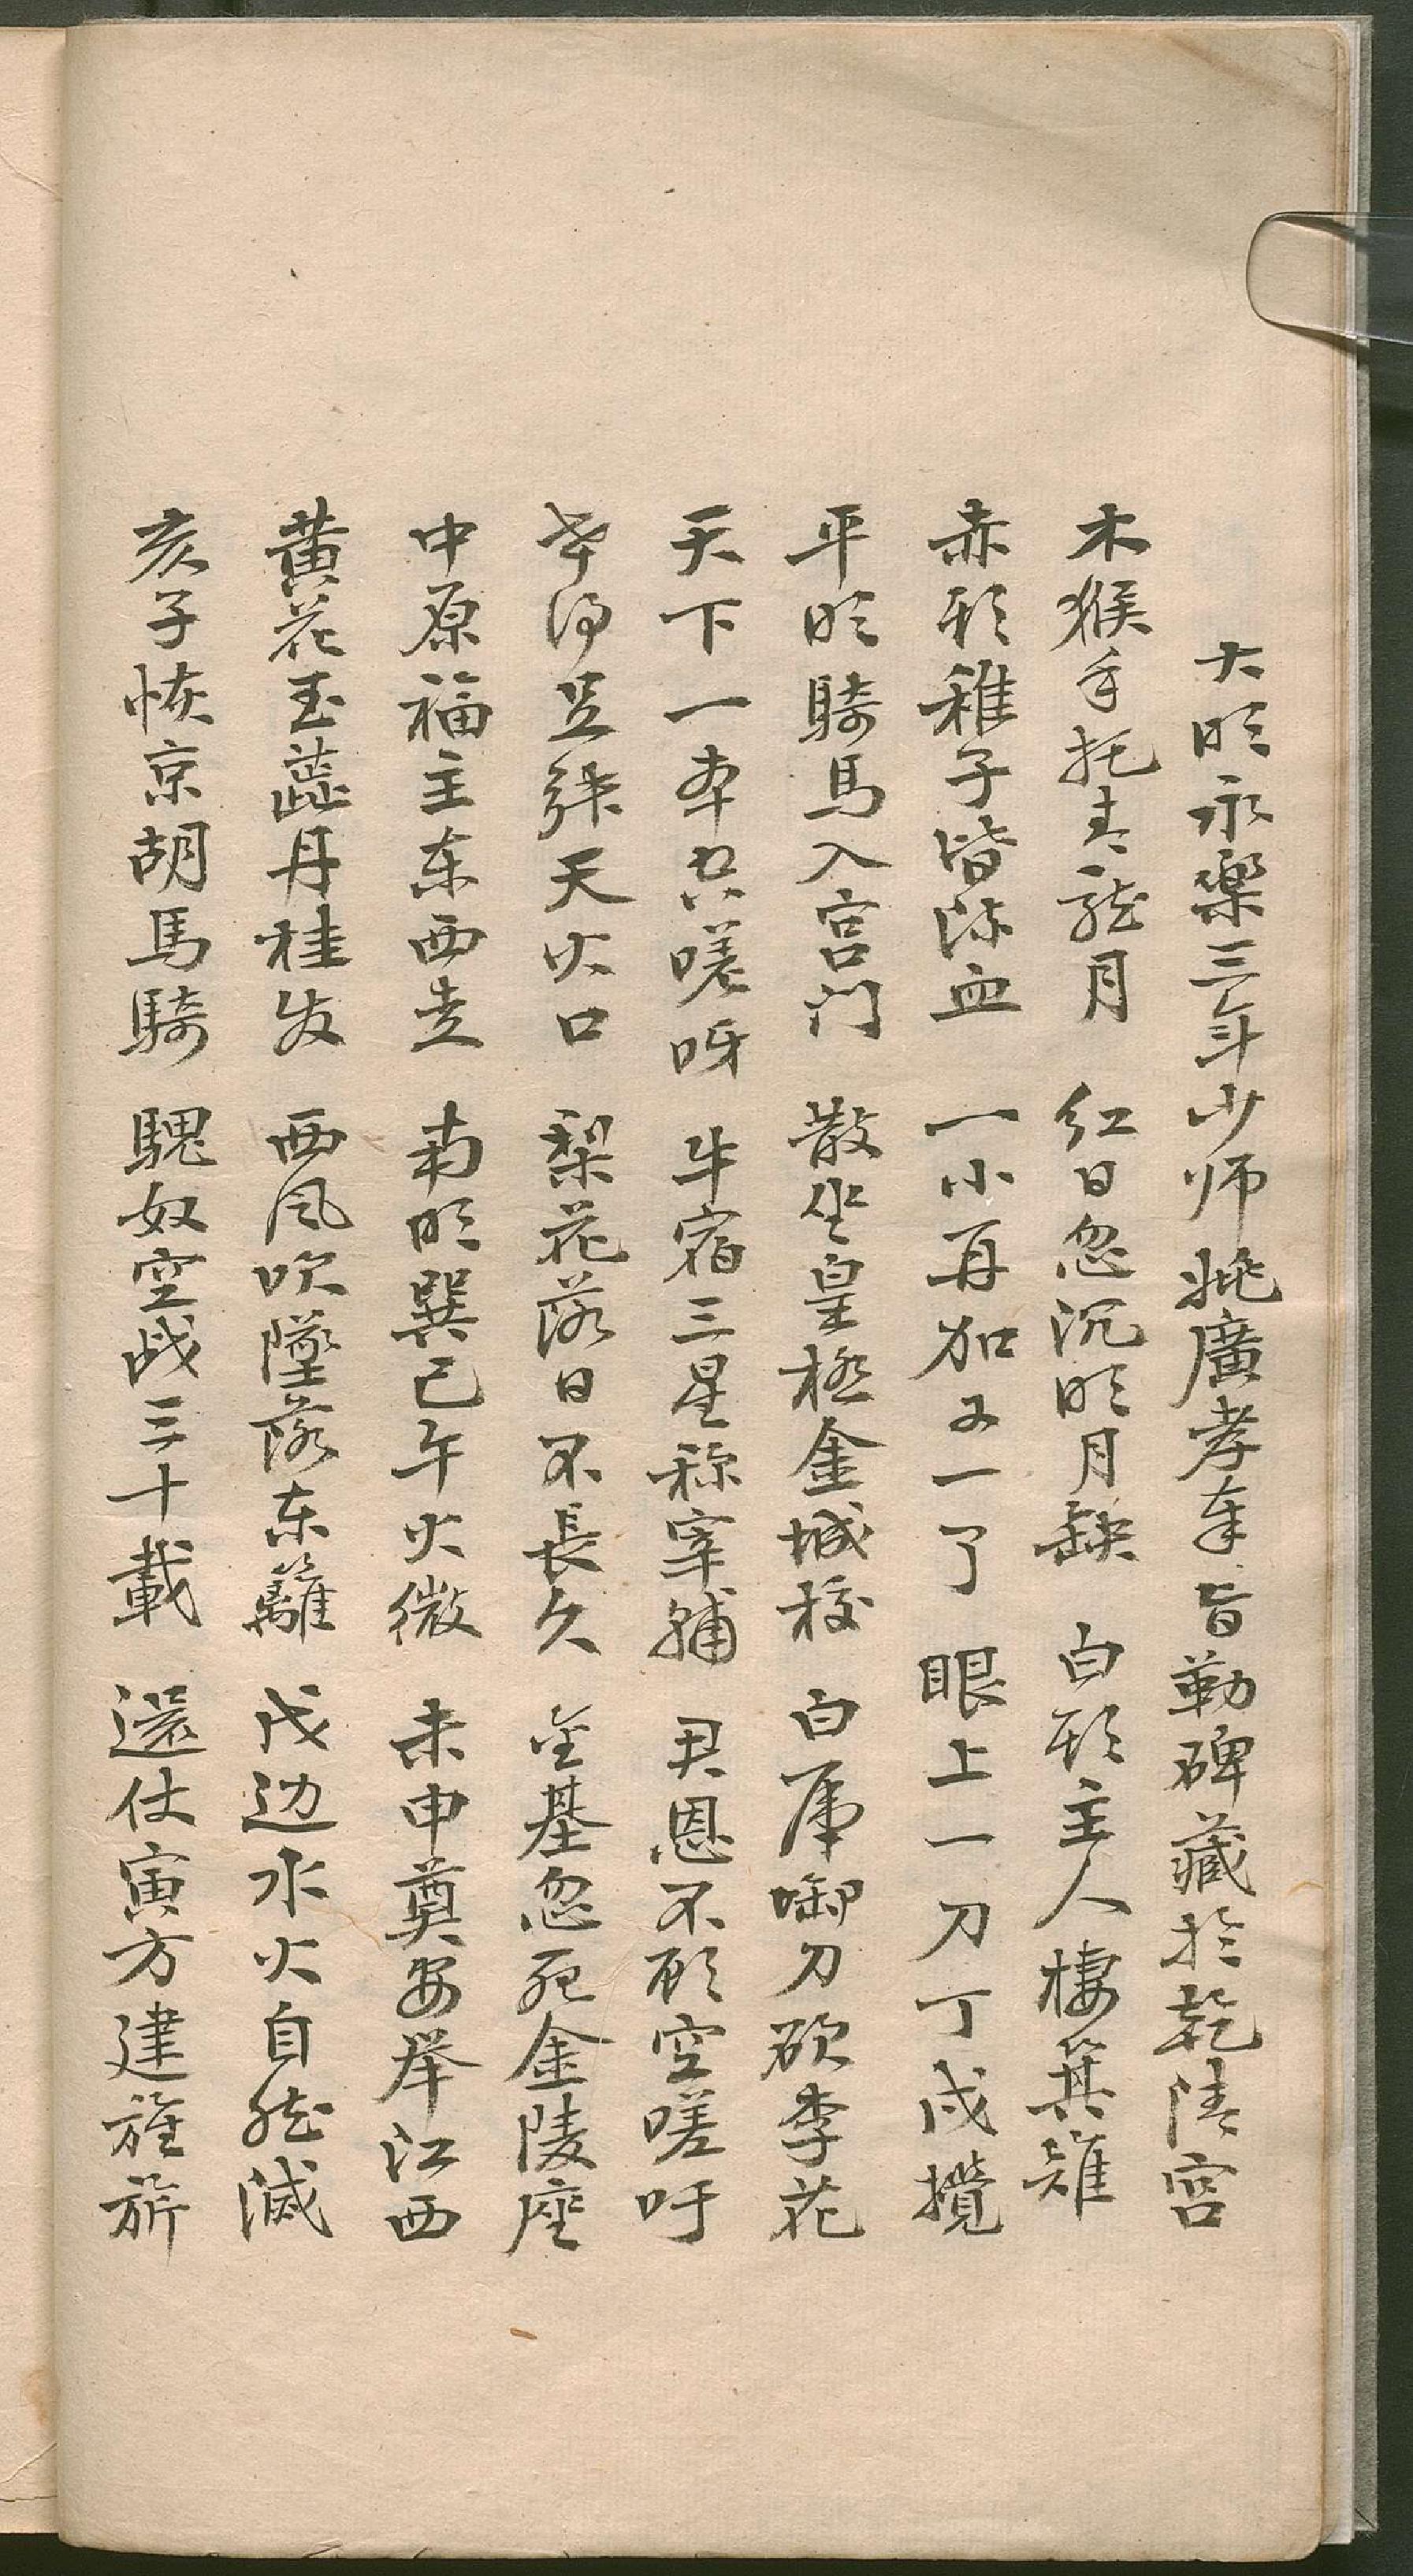 大明永樂三年少师姚廣孝奉旨勒碑藏於乾清宫
木猴手托青龍月 红日忽沉明月缺 白頭主人棲箕雉
赤眉稚子皆流血 一小再加又一了 眼上一刀丁戊攪
平明騎馬入宫门 散坐皇極金城校 白虎啣刀砍李花
天下一本共嗟呀 牛宿三星称宰補 君恩不顾空嗟吁
足紅天火口 梨花落日不長久 金基忽死金陵座
中原福主东西走 南明巽巳午火微 未申奠安举江西
黄花玉蕊丹桂发 西风吹墜落东籬 戊边水火自然滅
亥子恢京胡馬騎 騩奴空战三十載 還仗寅方建旌旂